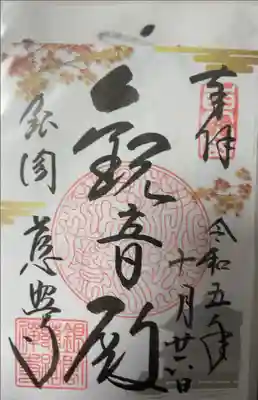 奉拝
令和五年
十月廿六日
観音殿
銀閣
慈照寺